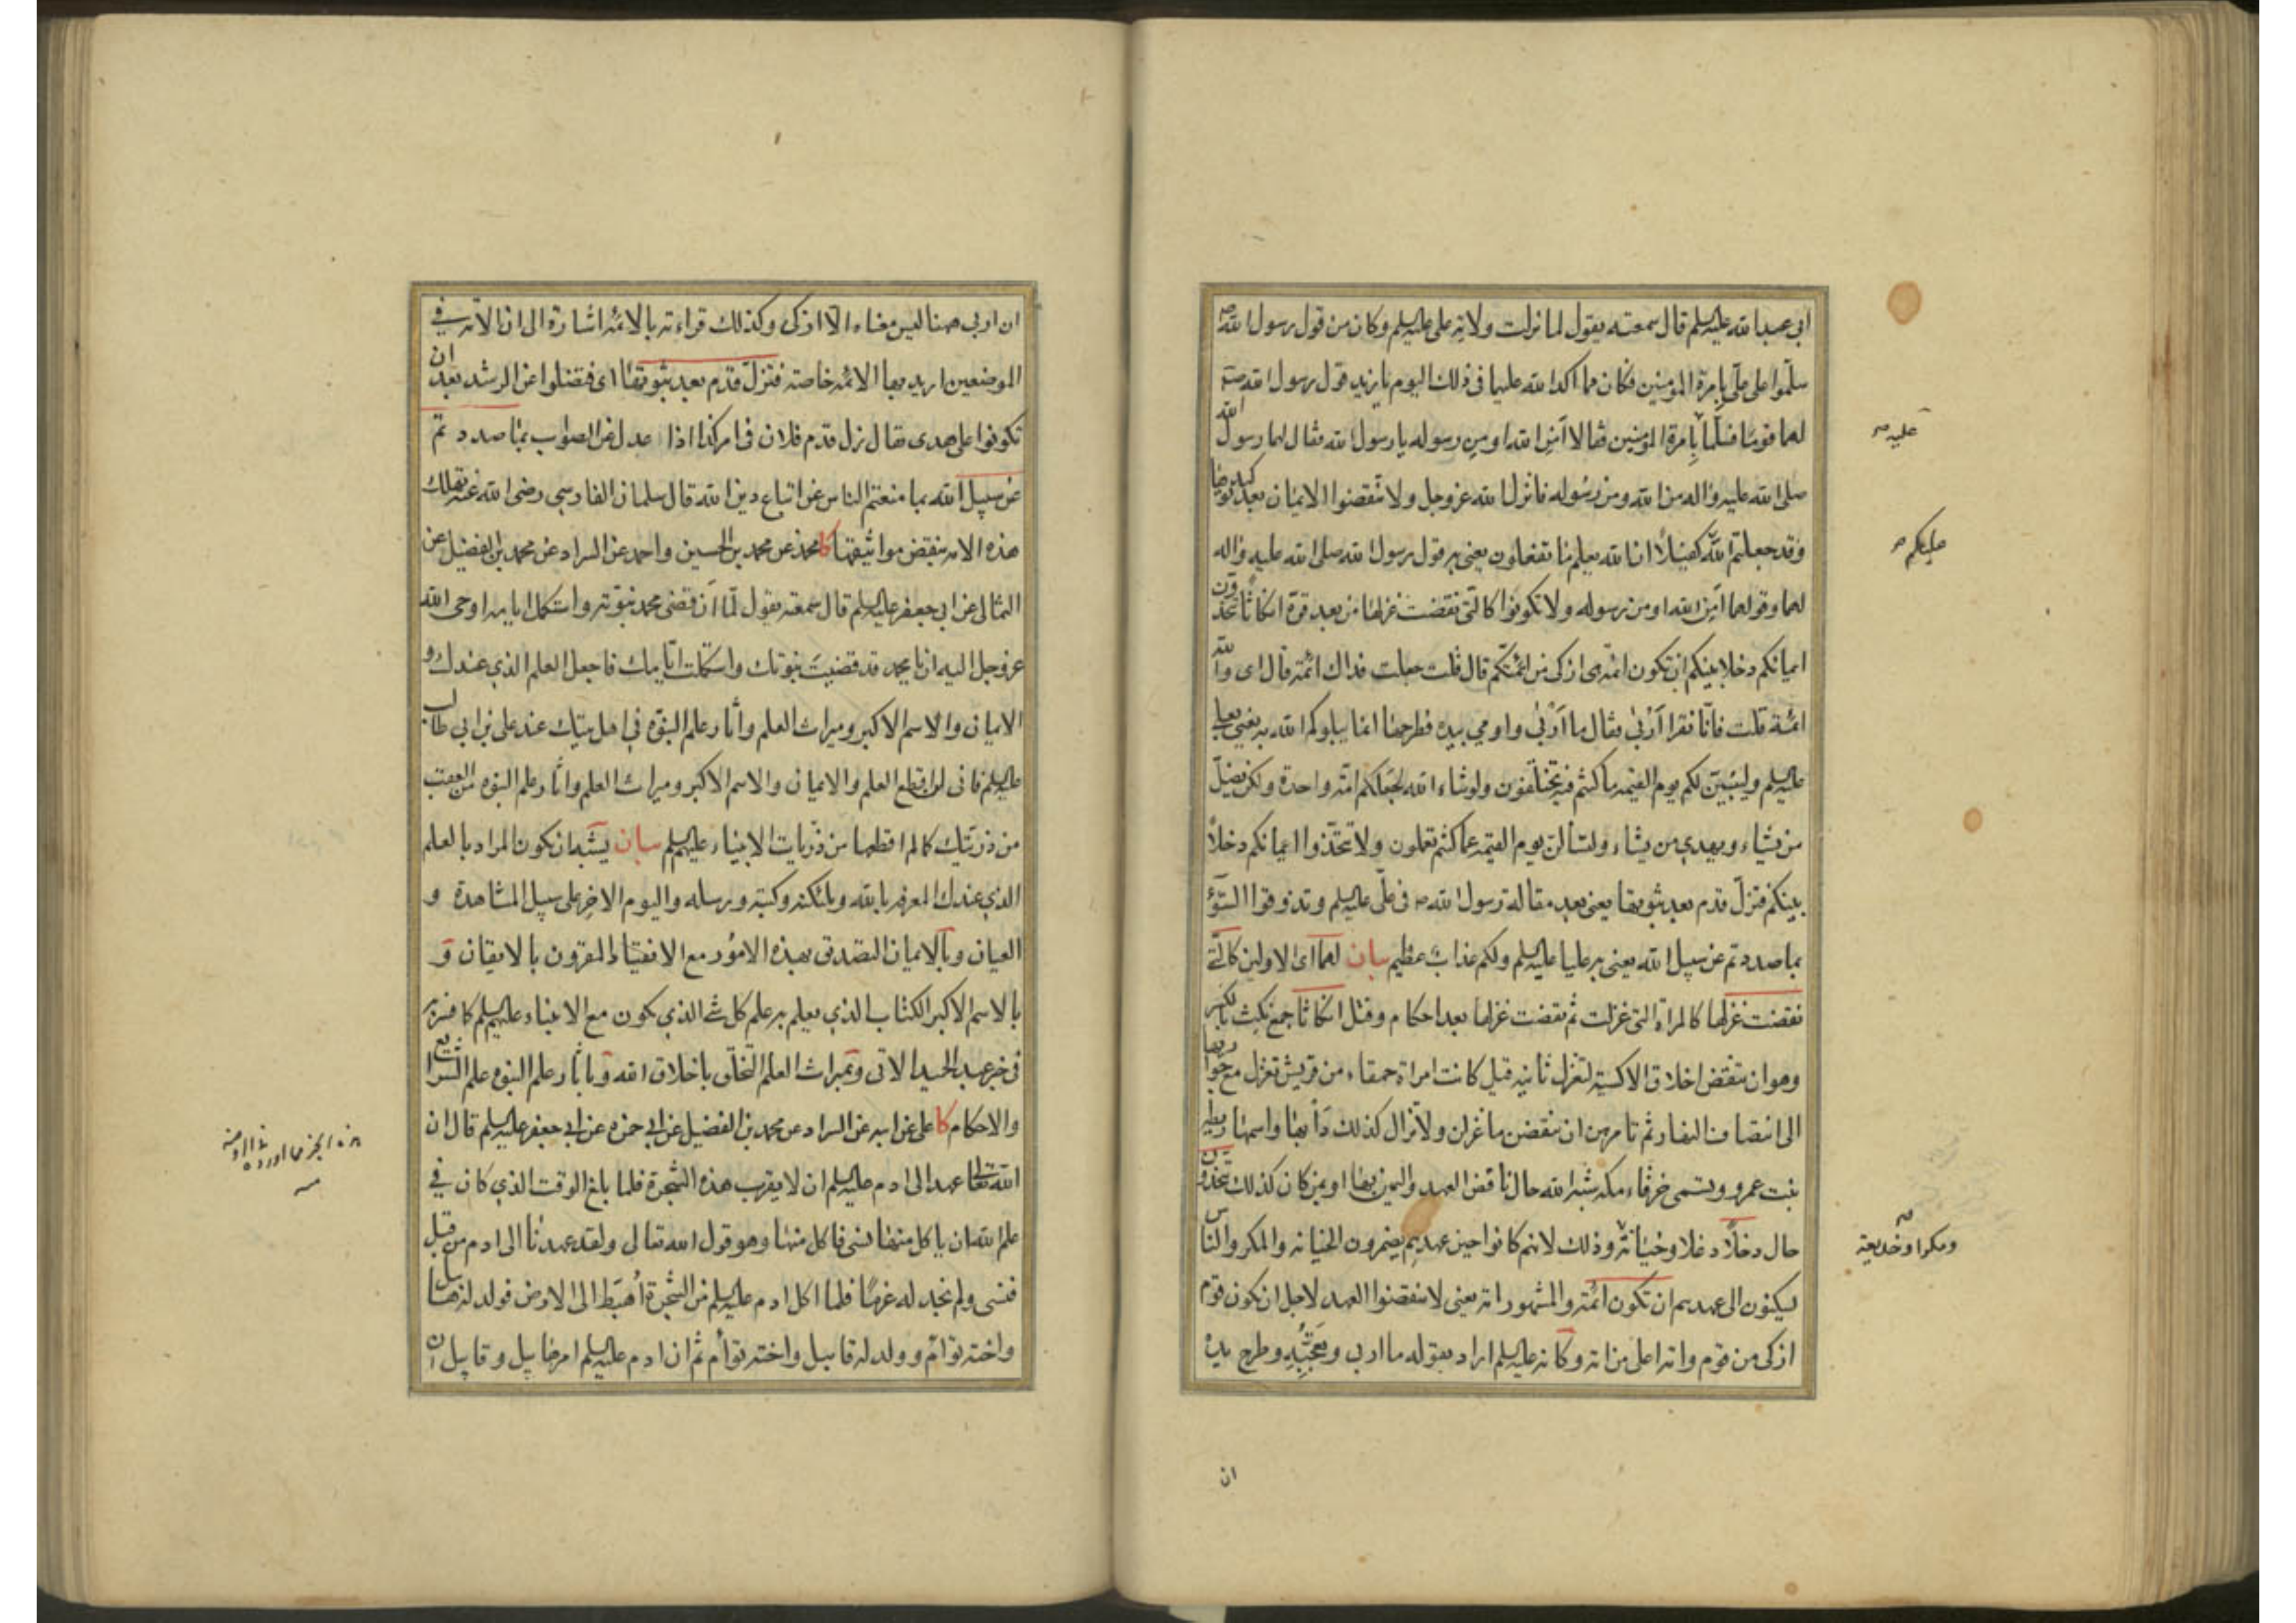 ابي عبد الله عليه السلم قال سمعته يقول لما نزلت ولاية علي عليه السلم وكان من قول رسول الله ص
سلّموا على عليّ بإمرة المؤمنين فكان مما اكد الله عليهما في ذلك اليوم يا زيد قول رسول الله ص
لهما قوما فسلّما بإمرة المؤمنين فقالا أمن الله او من رسوله يا رسول الله فقال لهما رسول الله
صلى الله عليه واله من الله ومن رسوله فانزل الله عز وجل ولا تنقضوا الايمان بعد توكيدها
وقد جعلتم الله عليكم كفيلاً ان الله يعلم ما تفعلون يعني به قول رسول الله صلى الله عليه واله
لهما وقولهما أمن الله او من رسوله ولا تكونوا كالتي نقضت غزلها من بعد قوة انكاثا تتخذون
ايمانكم دخلا بينكم ان تكون ائمة هي ازكى من ائمتكم قال قلت جعلت فداك ائمة قال اى والله
ائمة قلت فانّا نقرا أربى فقال ما أربى واومي بيده فطرحها انما يبلوكم الله به يعني بعلي
عليه السلم وليبيّنن لكم يوم القيمة ما كنتم فيه تختلفون ولو شاء الله لجعلكم امة واحدة ولكن يضلّ
من يشاء ويهدي من يشاء ولتسألن يوم القيمة عما كنتم تعملون ولا تتخذوا ايمانكم دخلاً
بينكم فتزلّ قدم بعد ثبوتها يعني بعد مقالة رسول الله ص في عليّ عليه السلم وتذوقوا السّوء
بما صددتم عن سبيل الله يعني به عليا عليه السلم ولكم عذاب عظيم بيان لهما اى الاولين كالتي
نقضت غزلها كالمراة التي غزلت ثم نقضت غزلها بعد احكام وفتل انكاثا جمع نكث بالكسر
وهو ان ينقض اخلاق الاكسية لتغزل ثانية قيل كانت امراة حمقاء من قريش تغزل مع جواريها
الى انتصاف النهار ثم تامرهن ان ينقضن ما غزلن ولا تزال كذلك دأبها واسمها ريطه
بنت عمرو وتسمى خرقاء مكه شبه الله حال ناقض العهد واليمين بها او بمن كان كذلك تتخذون
حال دخلاً دغلا وخيانة ومكرا وخديعة وذلك لانهم كانوا حين عهدهم يضمرون الخيانه والمكر والناس
ليكنون الى عهدهم ان تكون ائمة والمشهور امة يعني لا تنقضوا العهد لاجل ان تكون قوم
ازكى من قوم وامة اعلى من امة وكانه عليه السلم اراد بقوله ما اربى وتعجّبه وطرح يده
ان
عليه ص
عليكم ص
ومكرا وخديعة ص
ان اربى هنا ليس معناه الا ازكى وكذلك قراءته بالائمه اشارة الى ان الامة في
الموضعين اريد بها الائمه خاصة فتزلّ قدم بعد ثبوتها اى فتضلوا عن الرشد بعد ان
تكونوا على هدى يقال زل قدم فلان في امر كذا اذا عدل عن الصواب بما صددتم
عن سبيل الله بما منعتم الناس عن اتباع دين الله قال سلمان الفارسى رضى الله عنه تهلك
هذه الامه بنقض مواثيقها كا محمد عن محمد بن الحسين واحمد عن السراد عن محمد بن الفضيل عن
الثمالى عن ابى جعفر عليه السلم قال سمعته يقول لمّا أن قضى محمد نبوته واستكمل ايامه اوحى الله
عز وجل اليه ان يا محمد قد قضيت نبوتك واستكملت ايّامك فاجعل العلم الذي عندك و
الايمان والاسم الاكبر وميراث العلم وأثار علم النبوة في اهل بيتك عند على بن ابي طالب
عليه السلم فانى لن اقطع العلم والايمان والاسم الاكبر وميراث العلم واثار علم النبوه من العقب
من ذريتك كما لم اقطعها من ذريات الانبياء عليهم السلم بيان يشبه ان يكون المراد بالعلم
الذي عندك المعرفه بالله وملئكته وكتبه ورسله واليوم الاخر على سبيل المشاهدة و
العيان وبالايمان التصديق بهذه الامور مع الانقياد المقرون بالايقان و
بالاسم الاكبر الكتاب الذي يعلم به علم كل شئ الذي يكون مع الانبياء عليهم السلم كما فسره
في خبر عبد الحميد الاتى وبميراث العلم التخلّق باخلاق الله وباثار علم النبوه علم الشرايع
والاحكام كا على عن ابيه عن السراد عن محمد بن الفضيل عن ابي حمزه عن ابي جعفر عليه السلم قال ان
الله تعالى عهد الى ادم عليه السلم ان لا يقرب هذه الشجرة فلما بلغ الوقت الذي كان في
علم الله ان ياكل منها نسى فاكل منها وهو قول الله تعالى ولقد عهدنا الى ادم من قبل
فنسى ولم نجد له عزما فلما اكل ادم عليه السلم من الشجرة أهبط الى الارض فولد له هابيل
واخته توأم وولد له قابيل واخته توأم ثم ان ادم عليه السلم امر هابيل وقابيل ان